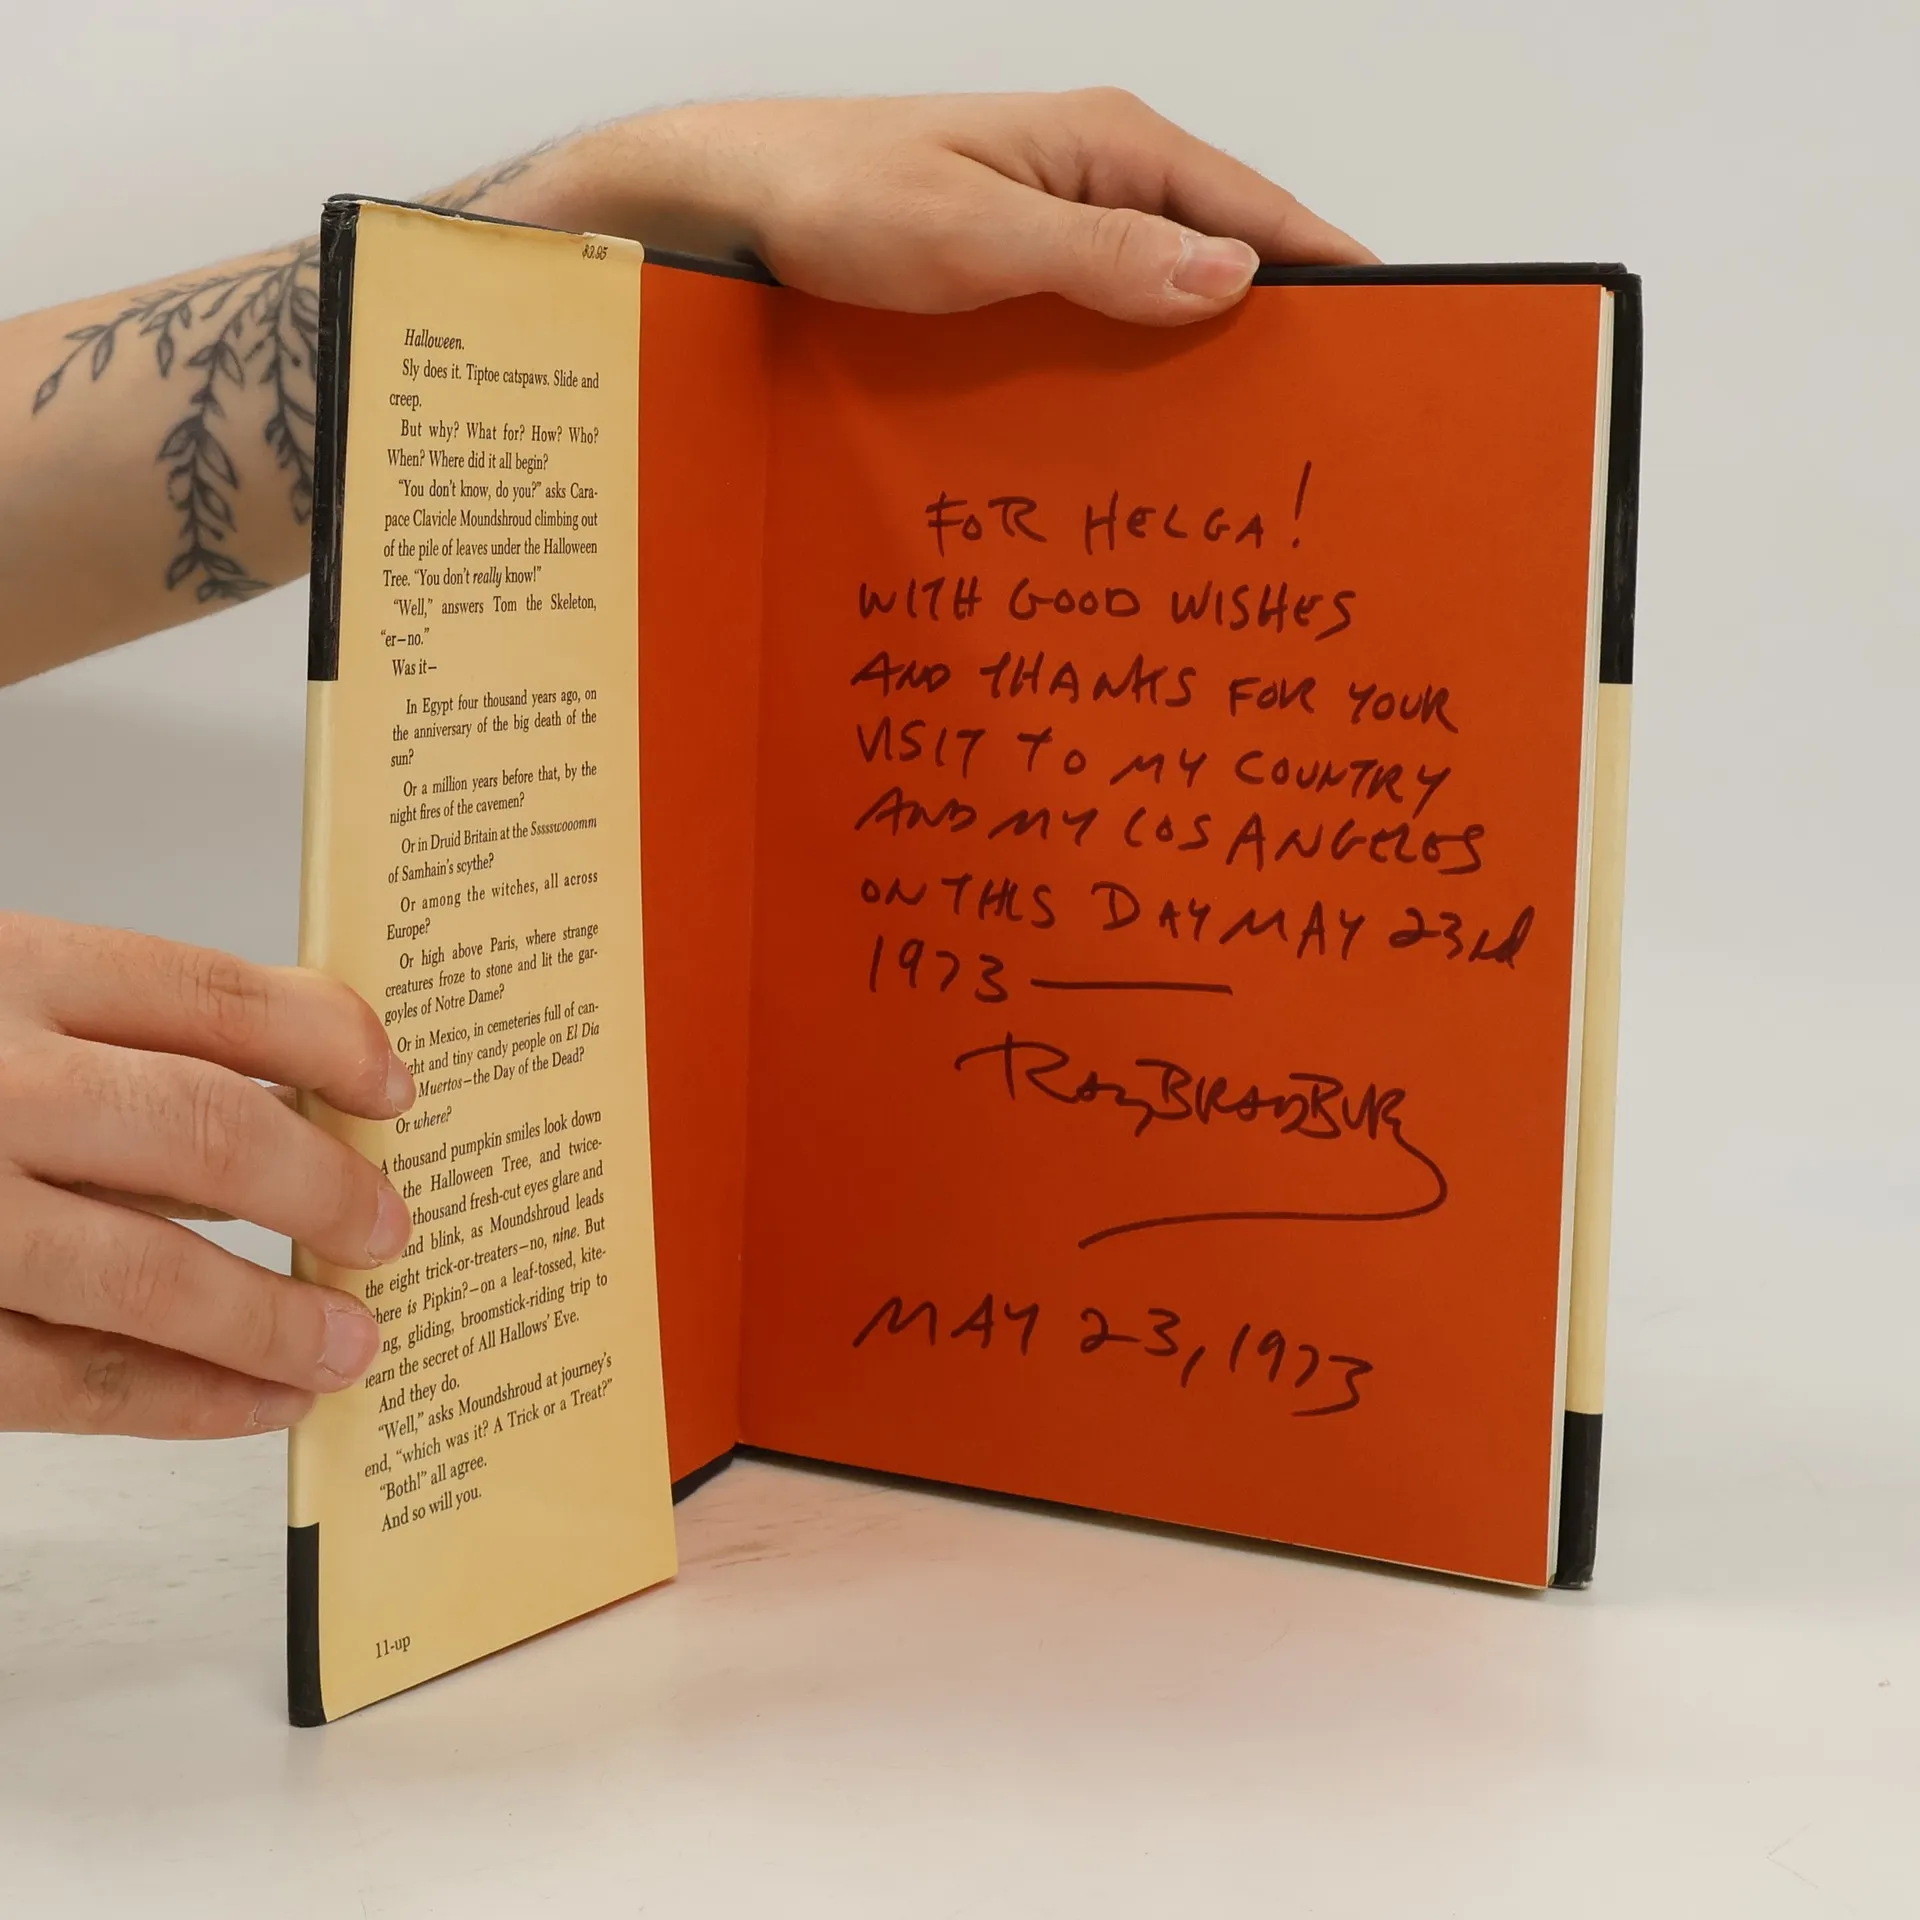 $3.95
Halloween.
Sly does it. Tiptoe catspaws. Slide and
creep.
But why? What for? How? Who?
When? Where did it all begin?
“You don't know, do you?” asks Cara-
pace Clavicle Moundshroud climbing out
of the pile of leaves under the Halloween
Tree. “You don't really know!”
“Well,” answers Tom the Skeleton,
“er—no.”
Was it—
In Egypt four thousand years ago, on
the anniversary of the big death of the
sun?
Or a million years before that, by the
night fires of the cavemen?
Or in Druid Britain at the Ssssswooomm
of Samhain's scythe?
Or among the witches, all across
Europe?
Or high above Paris, where strange
creatures froze to stone and lit the gar-
goyles of Notre Dame?
Or in Mexico, in cemeteries full of can-
ght and tiny candy people on El Dia
Muertos—the Day of the Dead?
Or where?
A thousand pumpkin smiles look down
the Halloween Tree, and twice-
thousand fresh-cut eyes glare and
and blink, as Moundshroud leads
the eight trick-or-treaters—no, nine. But
here is Pipkin?—on a leaf-tossed, kite-
ng, gliding, broomstick-riding trip to
learn the secret of All Hallows' Eve.
And they do.
“Well,” asks Moundshroud at journey's
end, “which was it? A Trick or a Treat?”
“Both!” all agree.
And so will you.
11-up
FOR HELGA!
WITH GOOD WISHES
AND THANKS FOR YOUR
VISIT TO MY COUNTRY
AND MY LOS ANGELES
ON THIS DAY MAY 23rd
1973 —
RAY BRADBURY
MAY 23, 1973